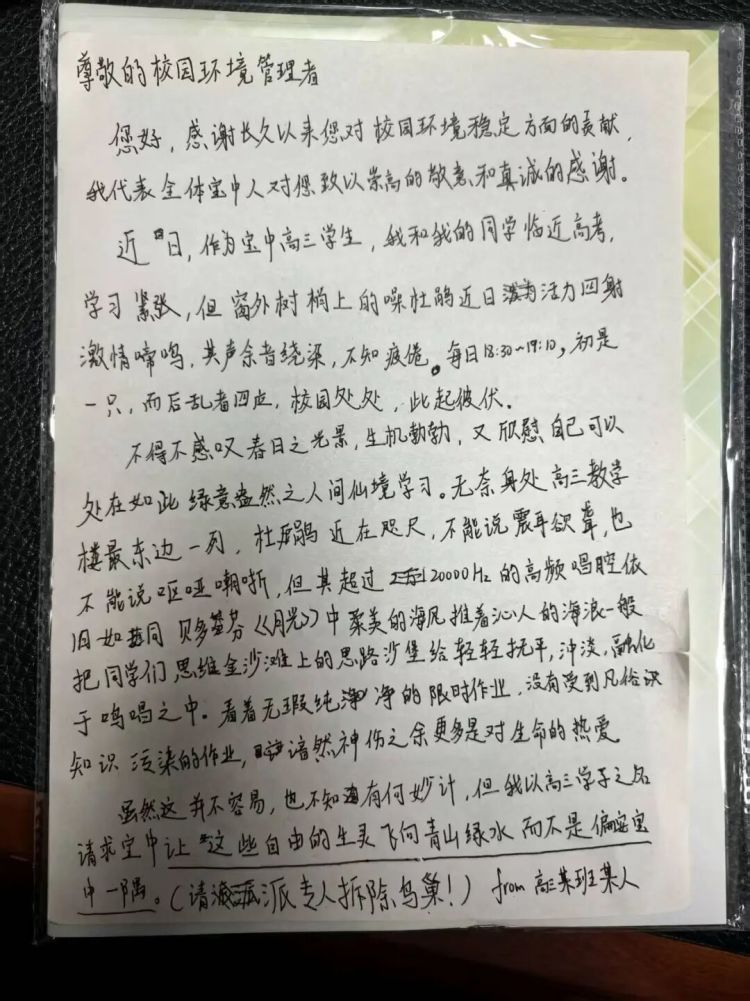 尊敬的校园环境管理者
您好，感谢长久以来您对校园环境稳定方面的贡献，
我代表全体宝中人对您致以崇高的敬意和真诚的感谢。
近日，作为宝中高三学生，我和我的同学临近高考，
学习紧张，但窗外树梢上的噪杜鹃近日活力四射
激情啼鸣，其声余音绕梁，不知疲倦。每日18:30~19:10，初是
一只，而后乱者四应，校园处处，此起彼伏。
不得不感叹春日之光景，生机勃勃，又欣慰自己可以
处在如此绿意盎然之人间仙境学习。无奈身处高三教学
楼最东边一列，杜鹃近在咫尺，不能说震耳欲聋，也
不能说呕哑嘲哳，但其超过20000Hz的高频唱腔依
旧如同贝多芬《月光》中聚美的海风推着沁人的海浪一般
把同学们思维金沙滩上的思路沙堡给轻轻抚平，冲淡，融化
于鸣唱之中。看着无瑕纯净的限时作业，没有受到凡俗识
知识污染的作业，谙然神伤之余更多是对生命的热爱
虽然这并不容易，也不知有何妙计，但我以高三学子之名
请求宝中让这些自由的生灵飞向青山绿水而不是偏安宝
中一隅。（请派专人拆除鸟巢！） from 高三某班某人